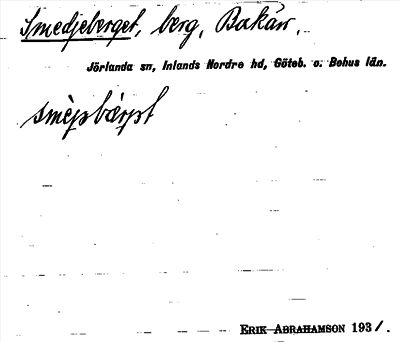 Smedjeberget, berg, Bakån.
Jörlanda sn, Inlands Nordre hd, Göteb. o. Bohus län.
ERIK ABRAHAMSON 1931.